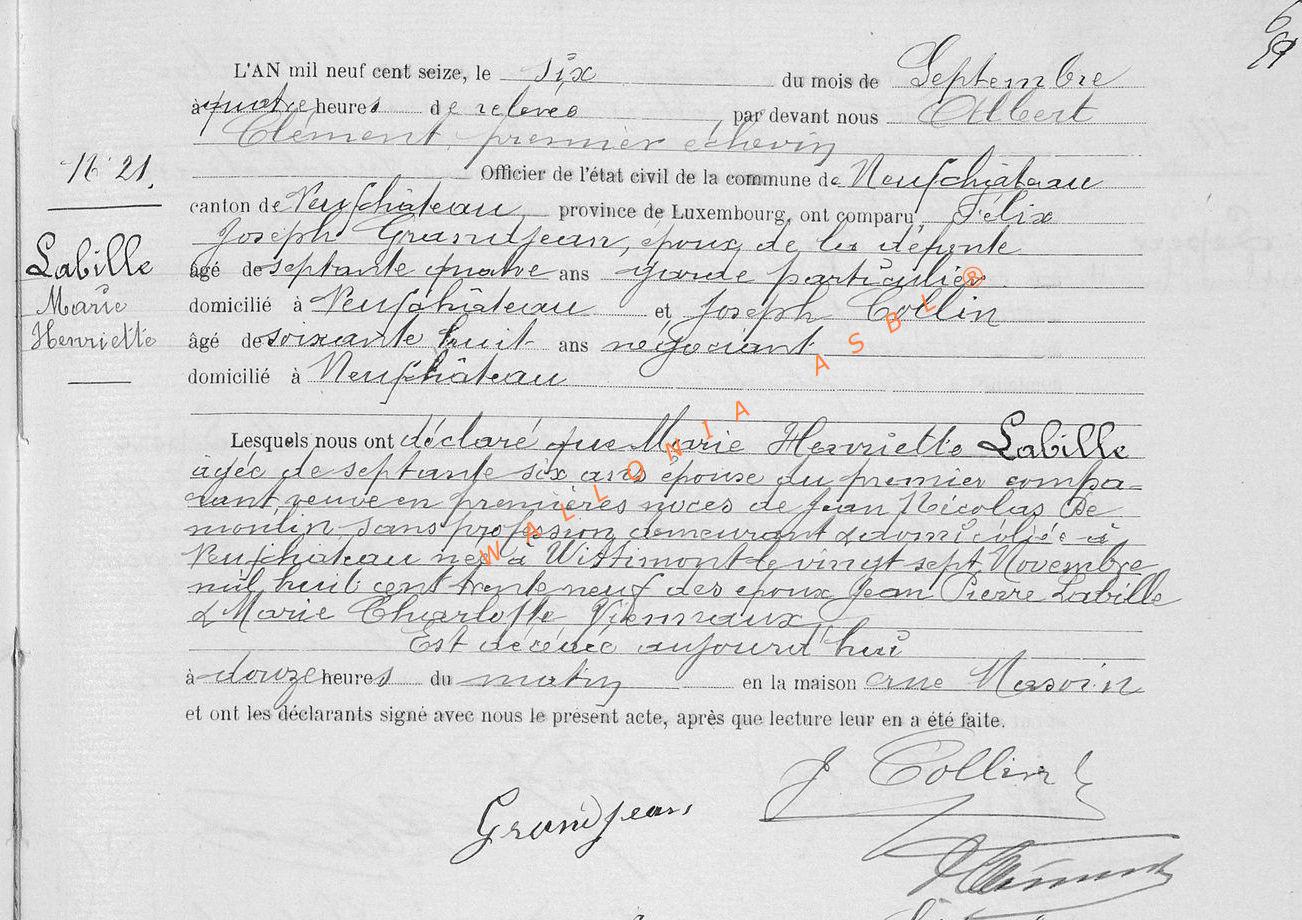 L'AN mil neuf cent seize, le six du mois de Septembre
à quatre heures de relevée, par devant nous Albert
Clément, premier échevin
N° 21.
Officier de l'état civil de la commune de Neufchâteau
canton de Neufchâteau, province de Luxembourg, ont comparu, Félix
Joseph Grandjean, époux de la défunte
Labille
Marie
Henriette
âgé de septante quatre ans garde particulier
domicilié à Neufchâteau et Joseph Collin
âgé de soixante huit ans négociant
domicilié à Neufchâteau
Lesquels nous ont déclaré que Marie Henriette Labille
agée de septante six ans épouse du premier compa-
rant, veuve en premières noces de Jean Nicolas De
moulin, sans profession, demeurant & domiciliée à
Neufchateau née à Wittimont le vingt sept Novembre
mil huit cent trente neuf des époux Jean Pierre Labille
& Marie Charlotte
Est décédée aujourd'hui
à douze heures du matin en la maison rue
et ont les déclarants signé avec nous le présent acte, après que lecture leur en a été faite.
J Collin
Grandjean
AClément
WALLONIA ASBL ®